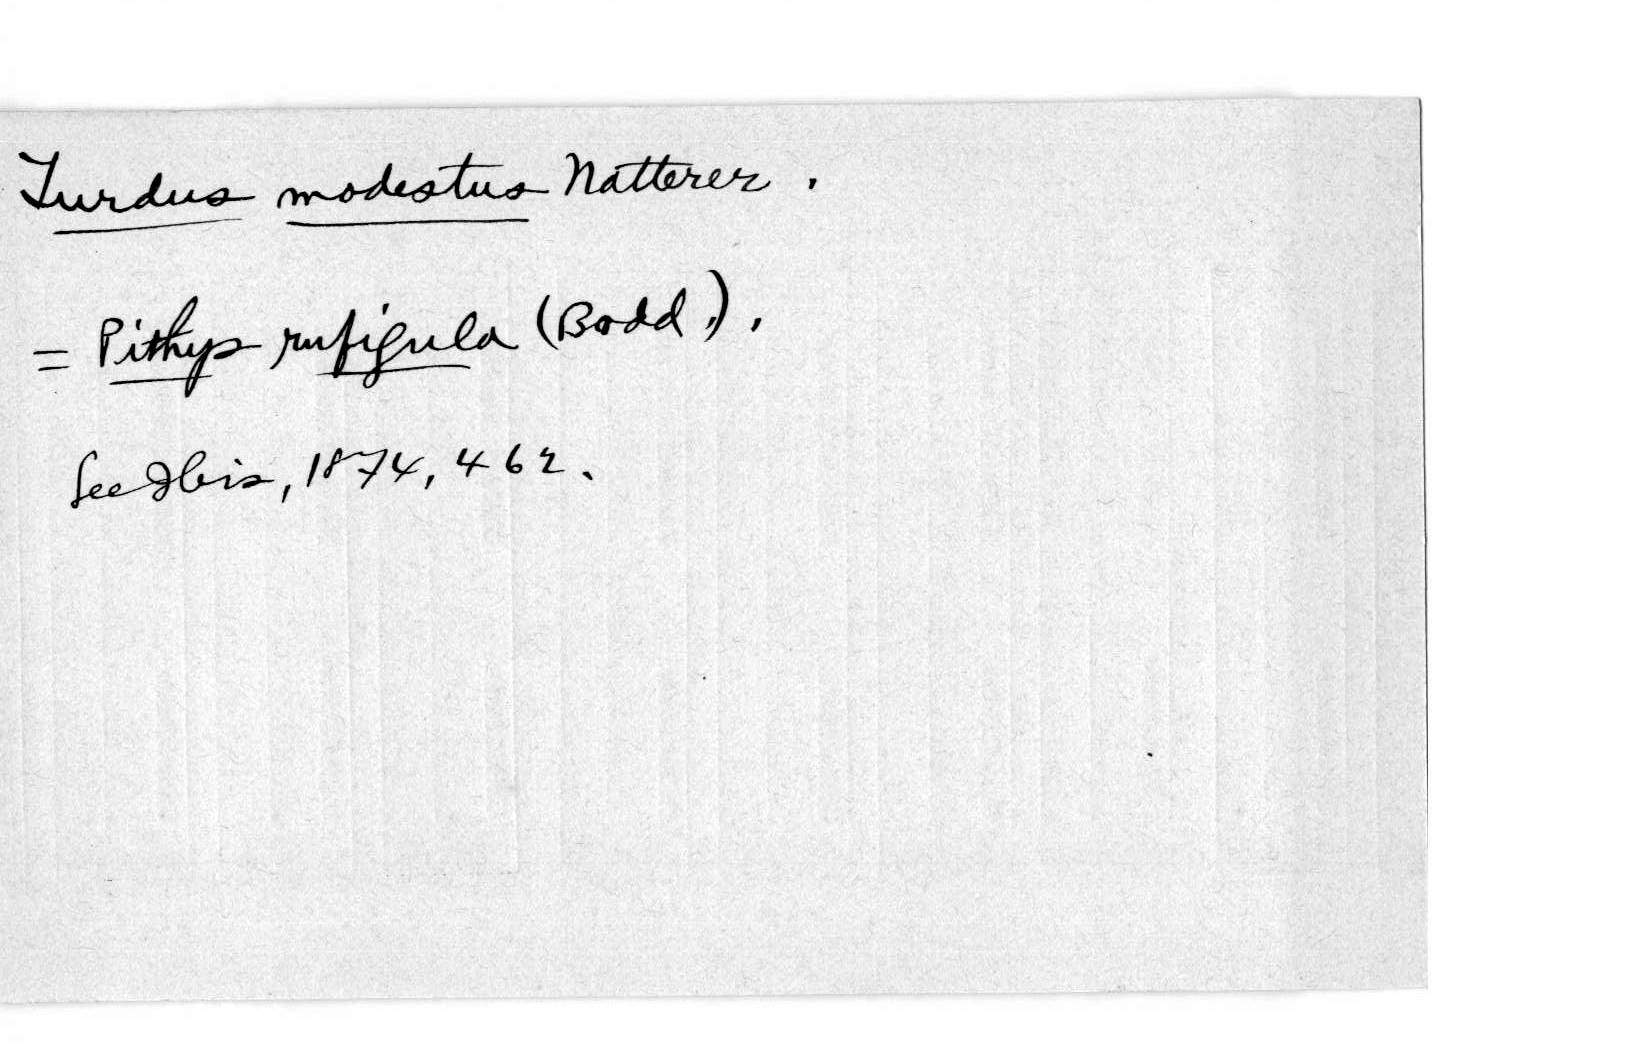 Turdus modestus Natterer.
= Pithys rufigula (Bodd.).
See Ibis, 1874, 462.